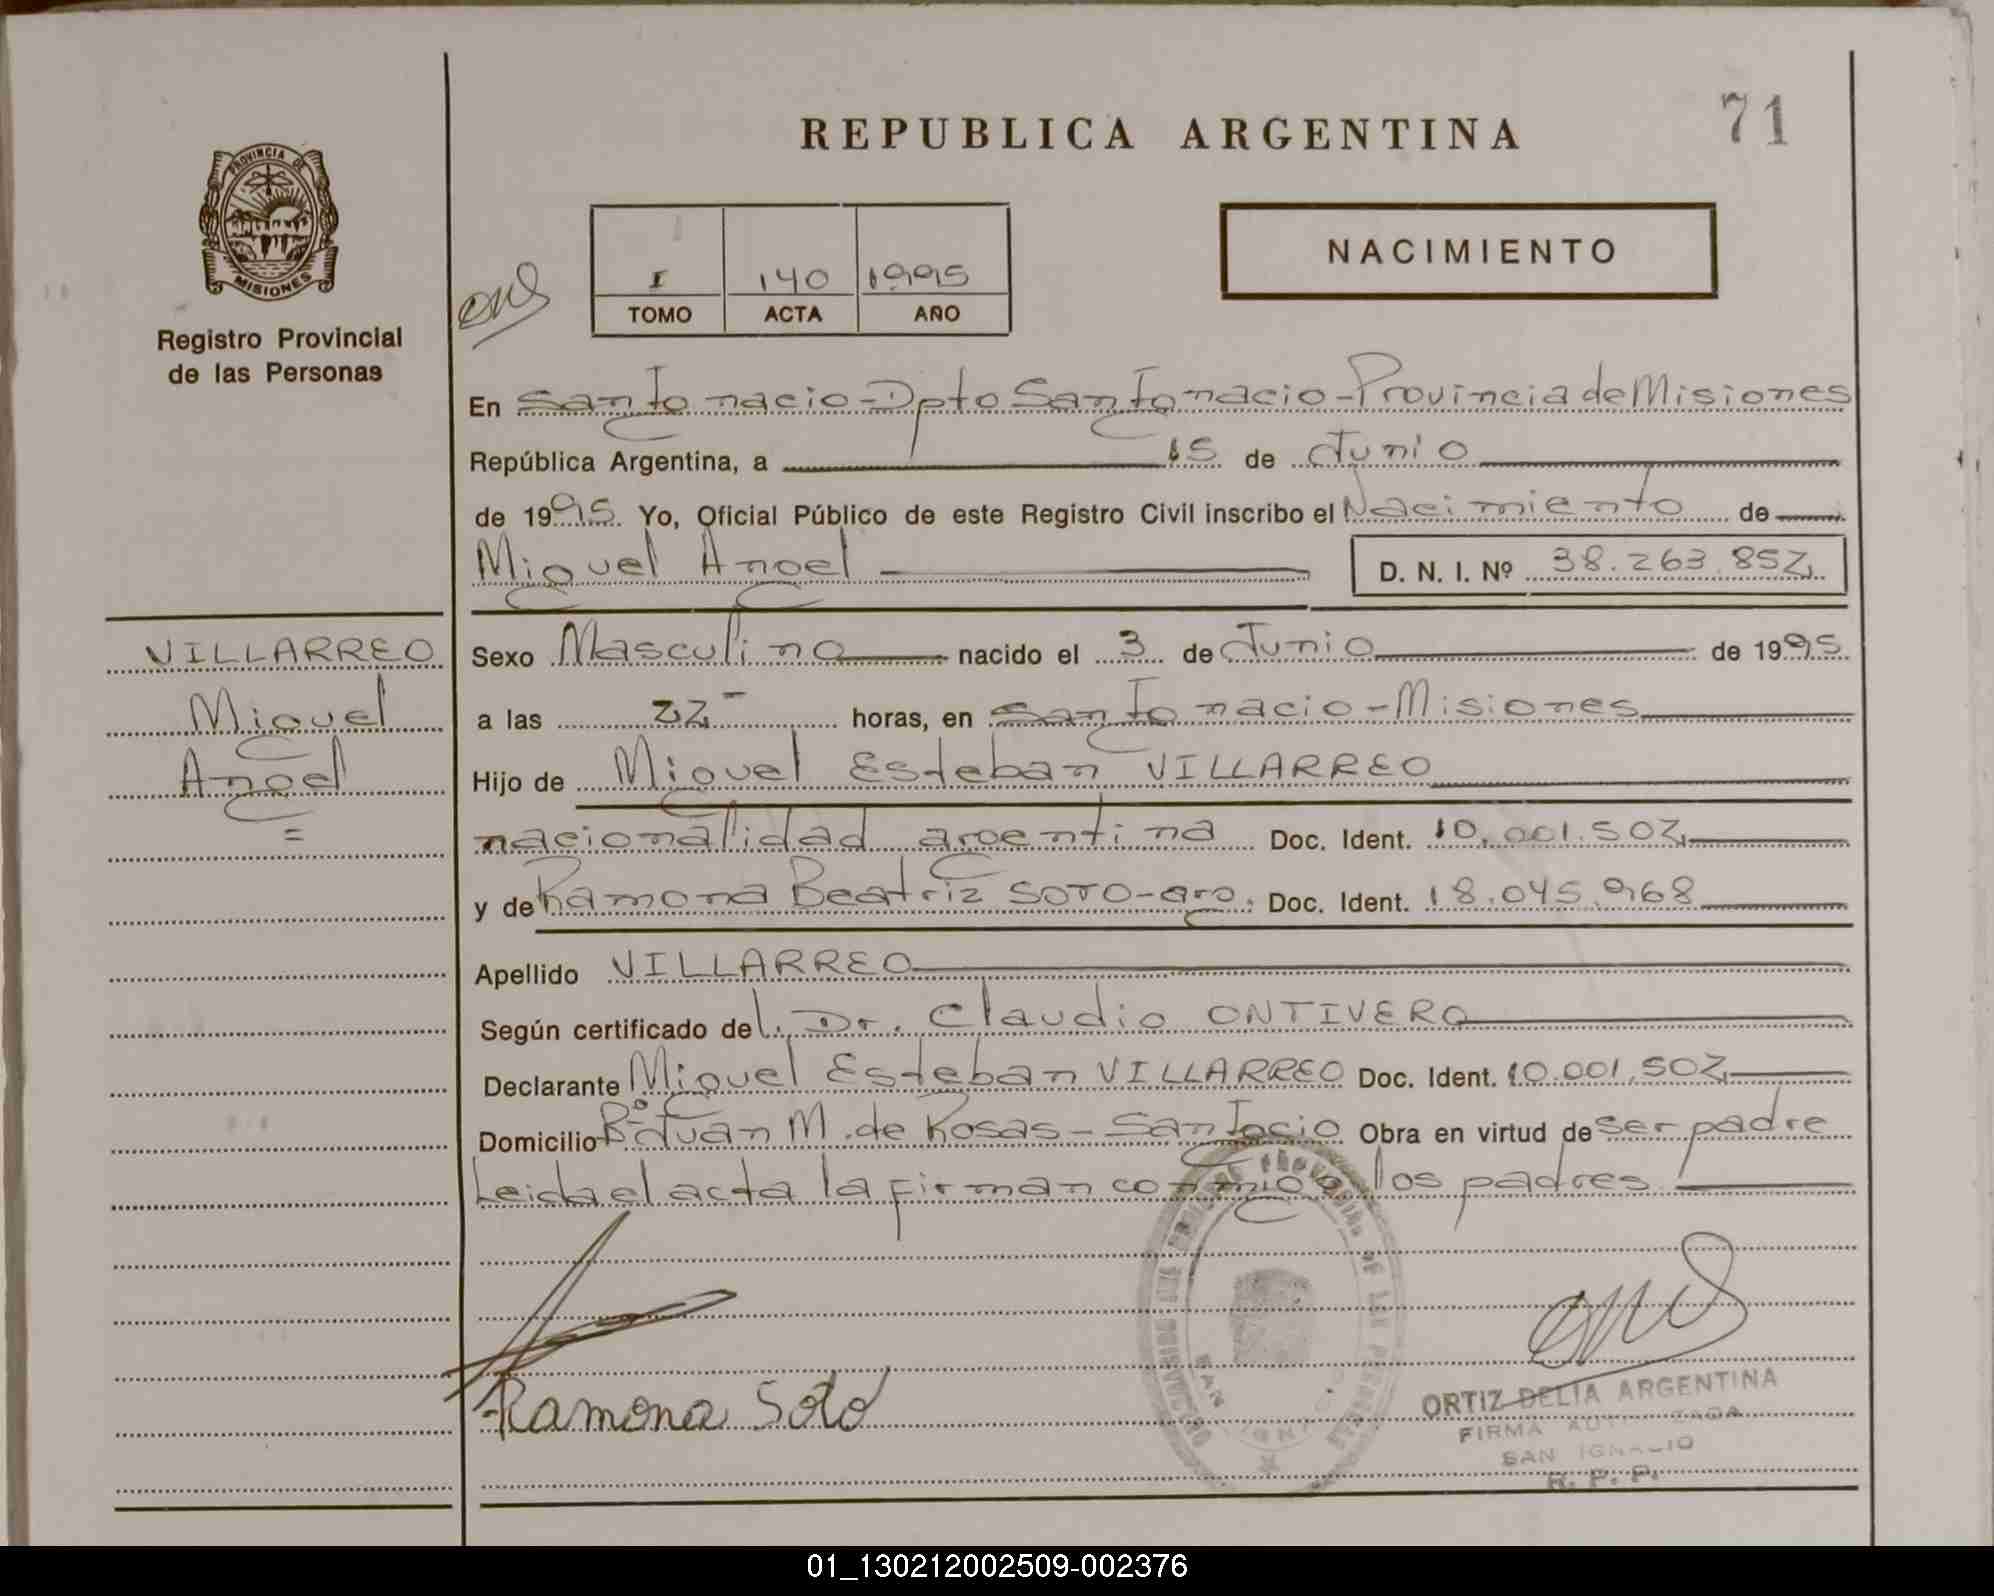 REPUBLICA ARGENTINA
71
PROVINCIA DE
MISIONES
Registro Provincial
de las Personas
I 140 1995
TOMO ACTA AÑO
NACIMIENTO
En San Ignacio - Dpto San Ignacio - Provincia de Misiones
República Argentina, a 15 de Junio
de 1995 Yo, Oficial Público de este Registro Civil inscribo el Nacimiento de
Miguel Angel D. N. I. Nº 38.263.852
VILLARREO
Miguel
Angel
=
Sexo Masculino nacido el 3 de Junio de 1995
a las 22- horas, en San Ignacio - Misiones
Hijo de Miguel Esteban VILLARREO
nacionalidad argentina Doc. Ident. 10.001.502
y de Ramona Beatriz SOTO - arg. Doc. Ident. 18.045.968
Apellido VILLARREO
Según certificado del. Dr. Claudio ONTIVERO
Declarante Miguel Esteban VILLARREO Doc. Ident. 10.001.502
Domicilio Bº Juan M. de Rosas - San Igcio Obra en virtud de ser padre
Leida el acta la firman conmigo los padres
Ramona Soto
ORTIZ DELIA ARGENTINA
FIRMA
SAN IGNACIO
R. P. P.
01_130212002509-002376